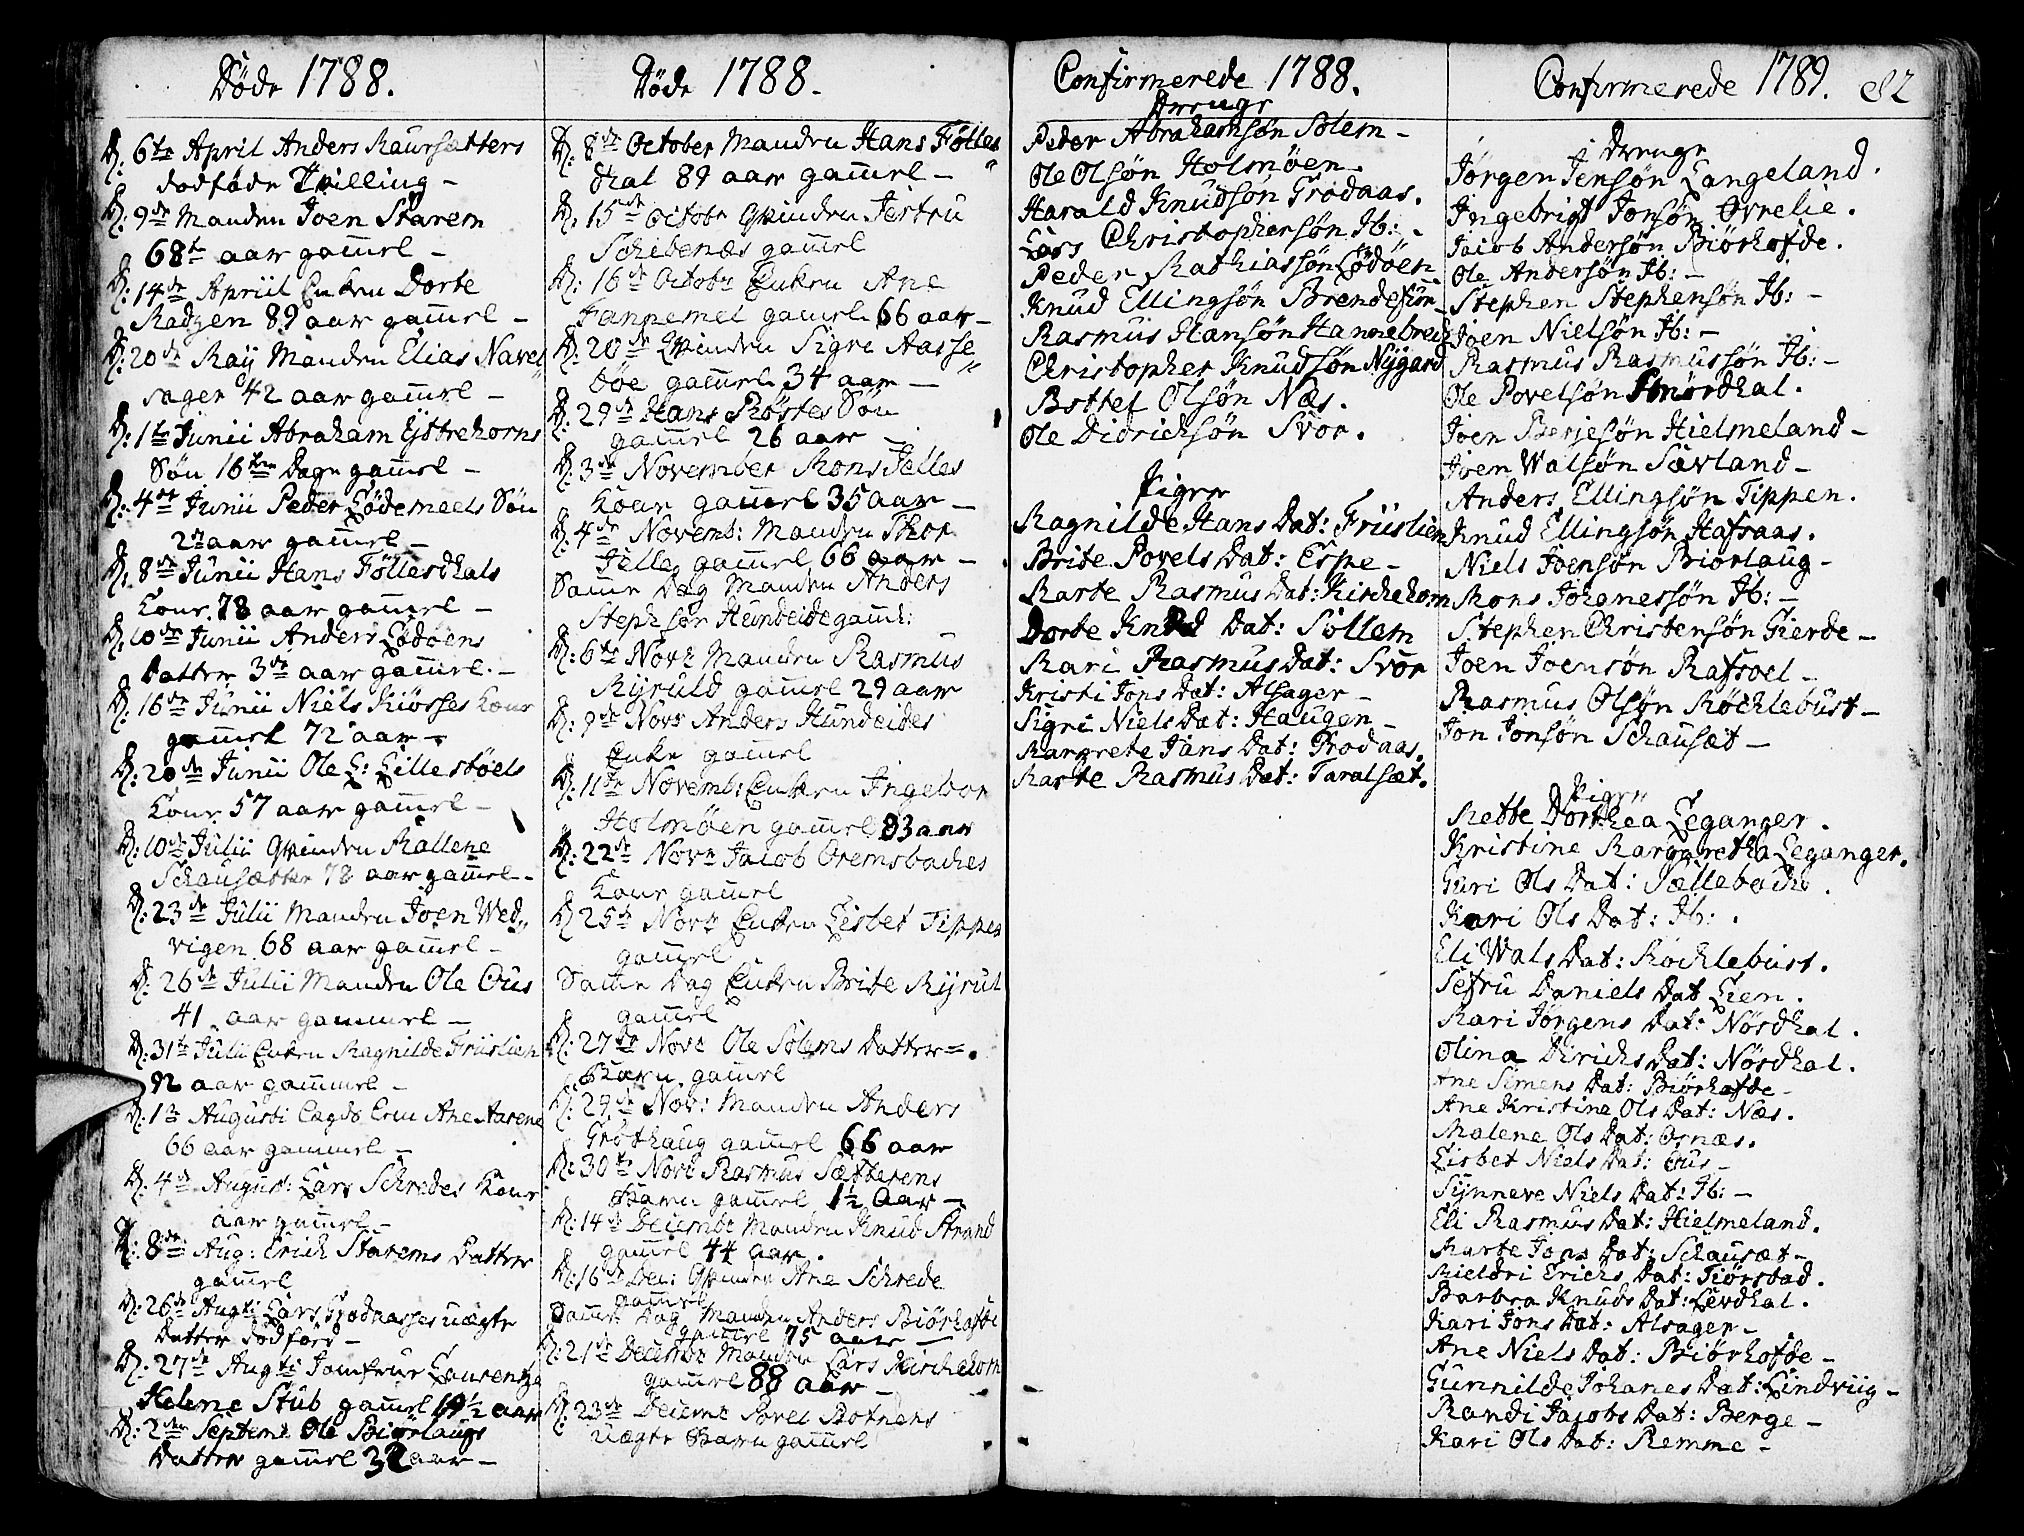 Døde 1788.
D: 6te April Anders Raursætters
dødfødde Tvilling -
D: 9de Manden Joen Starem
68te aar gamel -
D: 14de Apriil Enken Dorte
Madzen 89 aar gamel -
D: 20de Maij Manden Elias Navel
sager 42 aar gamel -
D: 1te Junii Abraham Ejstrehorns
Søn 16ten Dage gamel -
D: 4de Junii Peder Lødemeels Søn
2 aar gamel -
D: 8de Junii Hans Føllesdhals
Kone 78 aar gamel -
D: 10de Junii Anders Lødøens
Datter 3de aar gamel -
D: 16de Junii Niels Kiøsses Kone
gamel 72 aar -
D: 20de Junii Ole L: Lillestøels
Kone 57 aar gamel -
D: 10de Julii Qvinden Mallene
Schausætter 78 aar gamel -
D: 23de Julii Manden Joen Wed
vigen 68 aar gamel -
D: 26de Julii Manden Ole Ous
41 aar gammel -
D: 31te Julii Enken Magnilde Friislien
92 aar gammel -
D: 1te Augusti Lagds Ane Aarene
66 aar gammel -
D: 4de August: Lars Schredes Kone
aar gamel -
D: 8de Aug: Erich Starems Datter
gamel
D: 26de Augti: Lars Grodaases uægte
Datter dødfød -
D: 27de Augti Jomfrue Laurentza
Helene Stub gamel 19½ aar
D: 2den Septembr Ole Biørlaugs
Datter gamel 32 aar -
Døde 1788.
D: 8de October Manden Hans Følles
dhal 89 aar gamel -
D: 15de Octobr Qvinden Jertru
Schibenæs gamel
D: 16de Octobr Enken Ane
Fannemel gamel 66 aar -
D: 20de Qvinden Sigri Aasse
bøe gamel 34 aar -
D: 29de Hans Røstes Søn
gamel 26 aar -
D: 3de November Mons Jelles
Kone gamel 35 aar -
D: 4de Novemb: Manden Thor
Jelle gamel 66 aar -
Same Dag Manden Anders
Stephsøn Hundeide gaml:
D: 6te Novr Manden Rasmus
Myruld gamel 29 aar
D: 9de Novr Anders Hundeides
Enke gamel
D: 11te Novemb: Enken Ingebor
Holmøen gamel 83 aar
D: 22de Novr Jacob Oremsbaches
Kone gamel
D: 25de Novr Enken Lisbet Tippen
gamel
Same Dag Enken Brite Myrul
gamel
D: 27de Novr Ole Solems Datter
Barn gamel
D: 29de Nov: Manden Anders
Grøthaug gamel 66 aar
D: 30te Novr Rasmus Sætterens
Barn gamel 1½ Aar -
D: 14de Decembr Manden Knud Strand
gamel 44 aar.
D: 16de Dec: Qvinden Ane Schrede
gamel
Same Dag Manden Anders Biørhofde
gamel 75 aar -
D: 21de Decembr Manden Lars Kirchehorn
gamel 88 aar -
D: 23de Decembr Povel Botnens
uægte Barn gamel
Confirmerede 1788.
Drenge
Peder Abrahamsøn Solem -
Ole Olsøn Holmøen.
Harald Knudsøn Grodaas.
Lars Christophersøn Ib: -
Peder Mathiassøn Lødøen.
Knud Ellingsøn Brendefur
Rasmus Hansøn Hannebreck
Christopher Knudsøn Nygard
Bottef Olsøn Næs.
Ole Didrichsøn Svor.
Piger
Magnilde Hans Dat: Friislien
Brite Povels Dat: Espe -
Marte Rasmus Dat: Kirchehorn
Dorte Knud Dat: Sollem
Mari Rasmus Dat: Svor
Kristi Jons Dat: Alsager -
Sigri Niels Dat: Haugen -
Margrete Jans Dat: Grodaas.
Marte Rasmus Dat: Taralsæt.
Confirmerede 1789. 82
Drenge
Jørgen Jensøn Langeland.
Ingebrigt Jonsøn Øvrelie.
Jacob Andersøn Biørhofde.
Ole Andersøn Ib: -
Stephen Stephensøn Ib: -
Joen Nielsøn Ib: -
Rasmus Rasmussøn Ib: -
Ole Povelsøn Nørdhal.
Joen Berjesøn Hielmeland -
Joen Walsøn Sævland -
Anders Ellingsøn Tippen.
Knud Ellingsøn Hafsaas.
Niels Joensøn Biorlaug -
Mons Johanessøn Ib: -
Stephen Christensøn Gierde -
Joen Joensøn Rafsoel -
Rasmus Olsøn Røchlebust -
Jon Jonsøn Schausæt -
Piger
Mette Dorthea Leganger.
Kristine Margretha Leganger.
Guri Ols Dat: Sællebache.
Kari Ols Dat: Ib: .
Eli Wals Dat: Røchlebust.
Sefru Daniels Dat Lien.
Mari Jørgens Dat: Nørdhal.
Olina Dirichs Dat: Nørdhal.
Ane Simens Dat: Biørhofde -
Ane Kristine Ols Dat: Næs.
Malene Ols Dat: Osnæs.
Lisbet Niels Dat: Ous -
Synneve Niels Dat: Ib: -
Eli Rasmus Dat: Hielmeland.
Marte Jons Dat: Schausæt -
Mieldri Erichs Dat: Tiørstad.
Barbra Knuds Dat: Levdhal.
Kari Jons Dat: Alsager -
Ane Niels Dat: Biørhofde -
Gunnilde Johanes Dat: Lindviig -
Randi Jacobs Dat: Berge -
Kari Ols Dat: Remme -